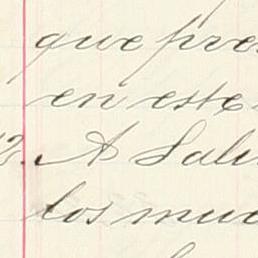 que pre
en este
12. A Salu
los muc